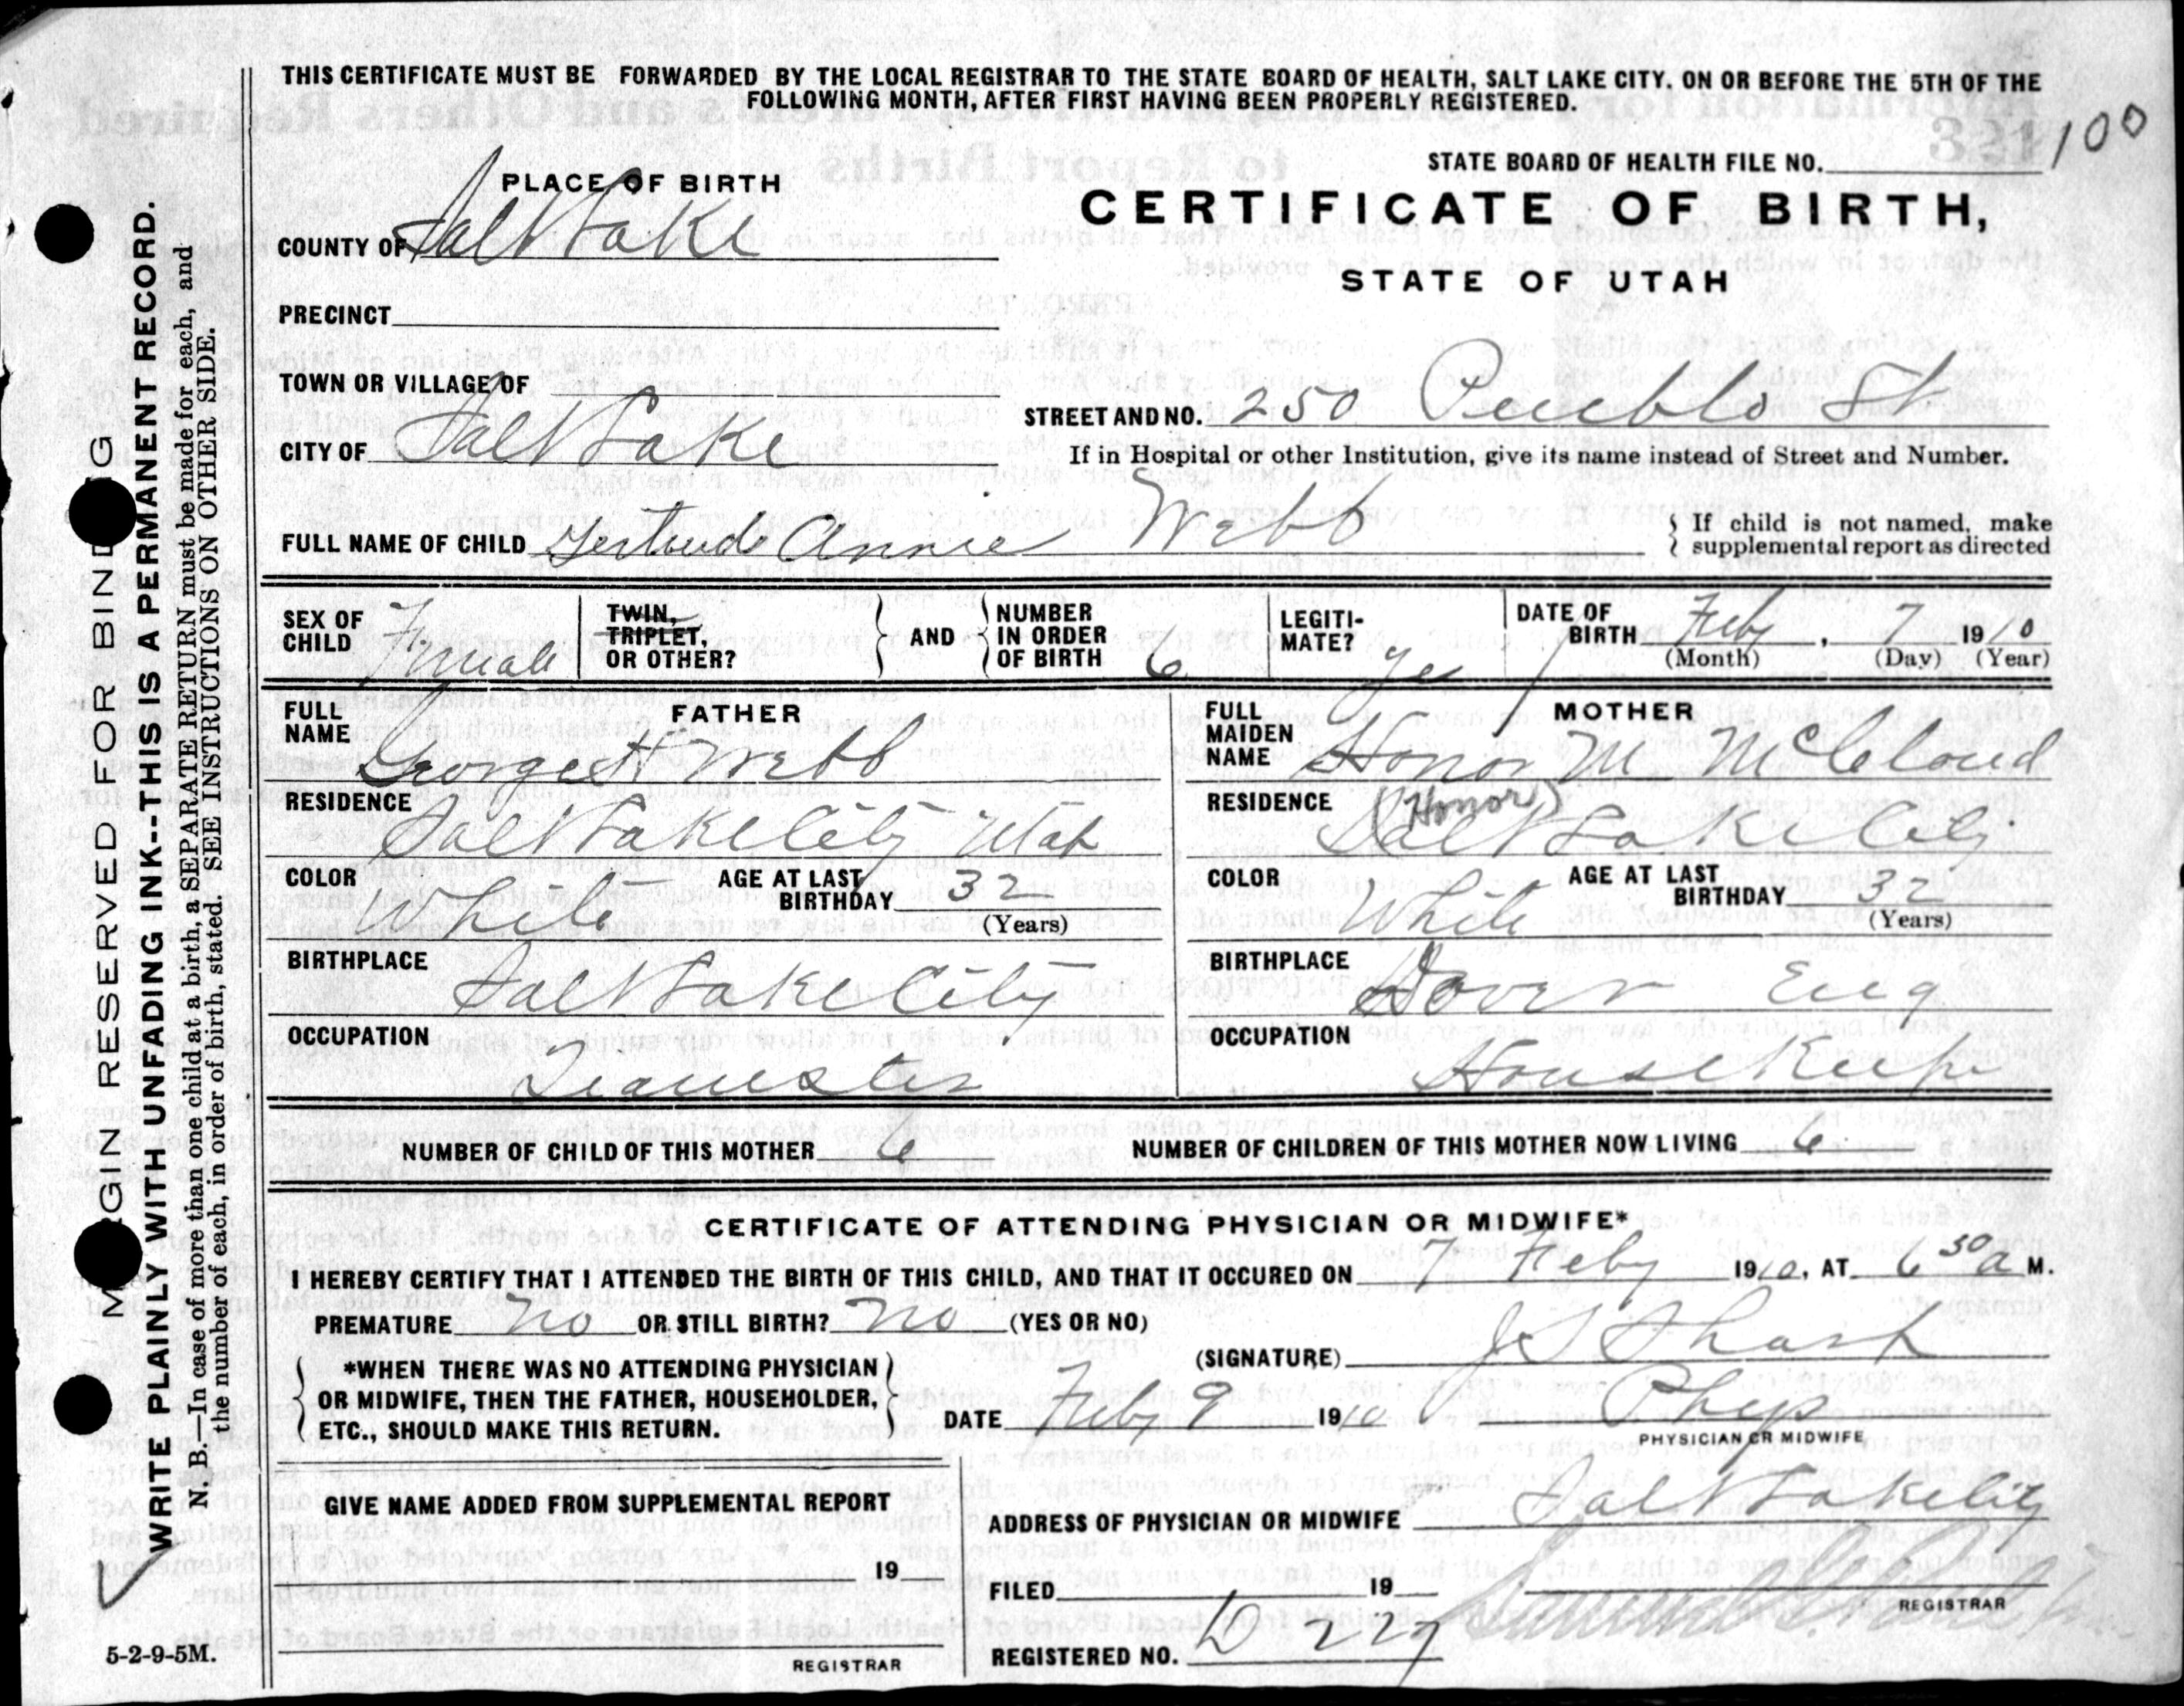 THIS CERTIFICATE MUST BE FORWARDED BY THE LOCAL REGISTRAR TO THE STATE BOARD OF HEALTH, SALT LAKE CITY. ON OR BEFORE THE 5TH OF THE
FOLLOWING MONTH, AFTER FIRST HAVING BEEN PROPERLY REGISTERED.
STATE BOARD OF HEALTH FILE NO. 100
PLACE OF BIRTH
CERTIFICATE OF BIRTH,
COUNTY OF Salt Lake
STATE OF UTAH
PRECINCT
TOWN OR VILLAGE OF
STREET AND NO. 250 Pueblo St
CITY OF Salt Lake
If in Hospital or other Institution, give its name instead of Street and Number.
FULL NAME OF CHILD Gertrude Annie Webb
{ If child is not named, make
supplemental report as directed
SEX OF CHILD Female
TWIN, TRIPLET, OR OTHER?
AND
NUMBER IN ORDER OF BIRTH 6
LEGITI- MATE? Yes
DATE OF BIRTH Feby, 7 1910
(Month) (Day) (Year)
FATHER
FULL NAME George H Webb
RESIDENCE Salt Lake City Utah
COLOR White
AGE AT LAST BIRTHDAY 32
(Years)
BIRTHPLACE Salt Lake City
OCCUPATION Teamster
MOTHER
FULL MAIDEN NAME Honor M McCloud
(Honor)
RESIDENCE Salt Lake City
COLOR White
AGE AT LAST BIRTHDAY 32
(Years)
BIRTHPLACE Dover Eng
OCCUPATION House Keep
NUMBER OF CHILD OF THIS MOTHER 6
NUMBER OF CHILDREN OF THIS MOTHER NOW LIVING 6
CERTIFICATE OF ATTENDING PHYSICIAN OR MIDWIFE*
I HEREBY CERTIFY THAT I ATTENDED THE BIRTH OF THIS CHILD, AND THAT IT OCCURED ON 7 Feby 1910, AT 6 30 a M.
PREMATURE no OR STILL BIRTH? no (YES OR NO)
(SIGNATURE) J S Sharp
*WHEN THERE WAS NO ATTENDING PHYSICIAN
OR MIDWIFE, THEN THE FATHER, HOUSEHOLDER,
ETC., SHOULD MAKE THIS RETURN.
DATE Feby 9 1910
Phys
PHYSICIAN OR MIDWIFE
GIVE NAME ADDED FROM SUPPLEMENTAL REPORT
19
REGISTRAR
ADDRESS OF PHYSICIAN OR MIDWIFE Salt Lake City
FILED 19
REGISTRAR
REGISTERED NO. D 227
MARGIN RESERVED FOR BINDING
WRITE PLAINLY WITH UNFADING INK--THIS IS A PERMANENT RECORD.
N. B.—In case of more than one child at a birth, a SEPARATE RETURN must be made for each, and
the number of each, in order of birth, stated. SEE INSTRUCTIONS ON OTHER SIDE.
5-2-9-5M.